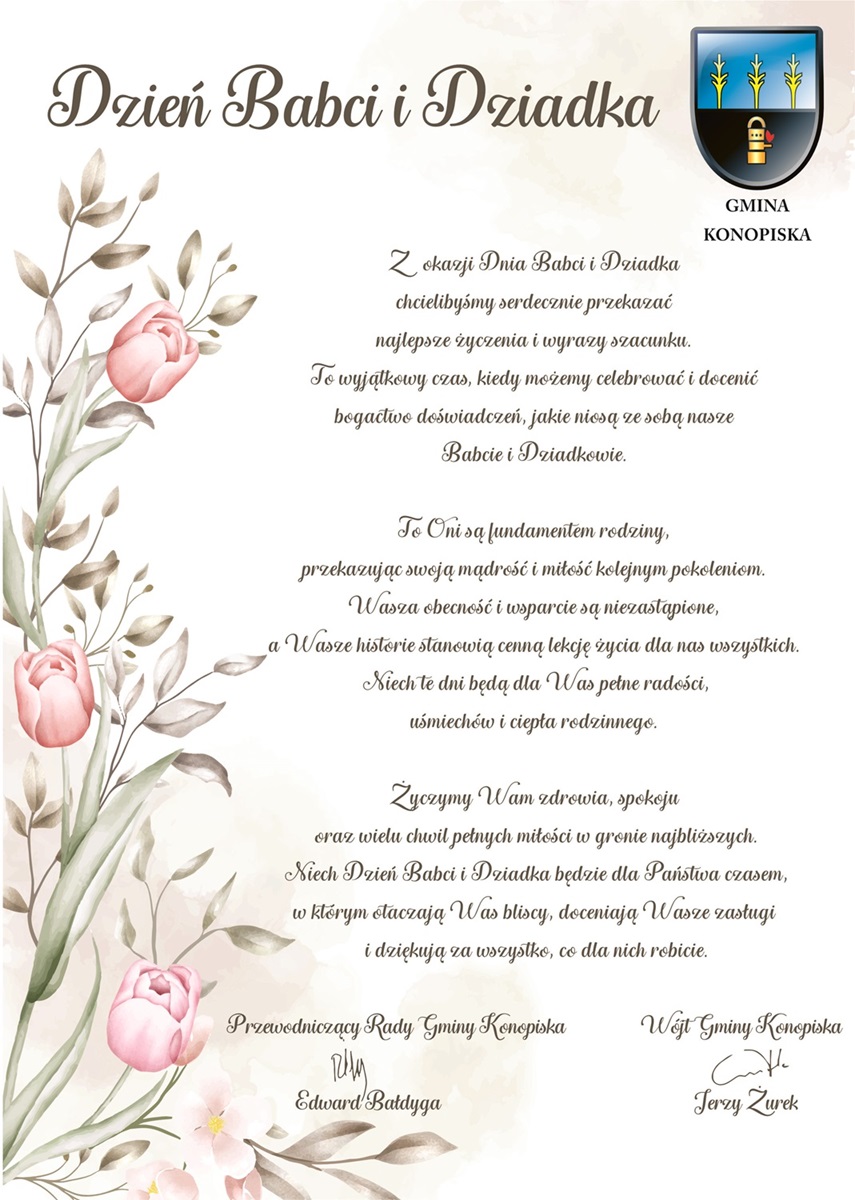 Dzień Babci i Dziadka
GMINA
KONOPISKA
Z okazji Dnia Babci i Dziadka
chcielibyśmy serdecznie przekazać
najlepsze życzenia i wyrazy szacunku.
To wyjątkowy czas, kiedy możemy celebrować i docenić
bogactwo doświadczeń, jakie niosą ze sobą nasze
Babcie i Dziadkowie.
To Oni są fundamentem rodziny,
przekazując swoją mądrość i miłość kolejnym pokoleniom.
Wasza obecność i wsparcie są niezastąpione,
a Wasze historie stanowią cenną lekcję życia dla nas wszystkich.
Niech te dni będą dla Was pełne radości,
uśmiechów i ciepła rodzinnego.
Życzymy Wam zdrowia, spokoju
oraz wielu chwil pełnych miłości w gronie najbliższych.
Niech Dzień Babci i Dziadka będzie dla Państwa czasem,
w którym otaczają Was bliscy, doceniają Wasze zasługi
i dziękują za wszystko, co dla nich robicie.
Przewodniczący Rady Gminy Konopiska
Edward Bałdyga
Wójt Gminy Konopiska
Jerzy Żurek